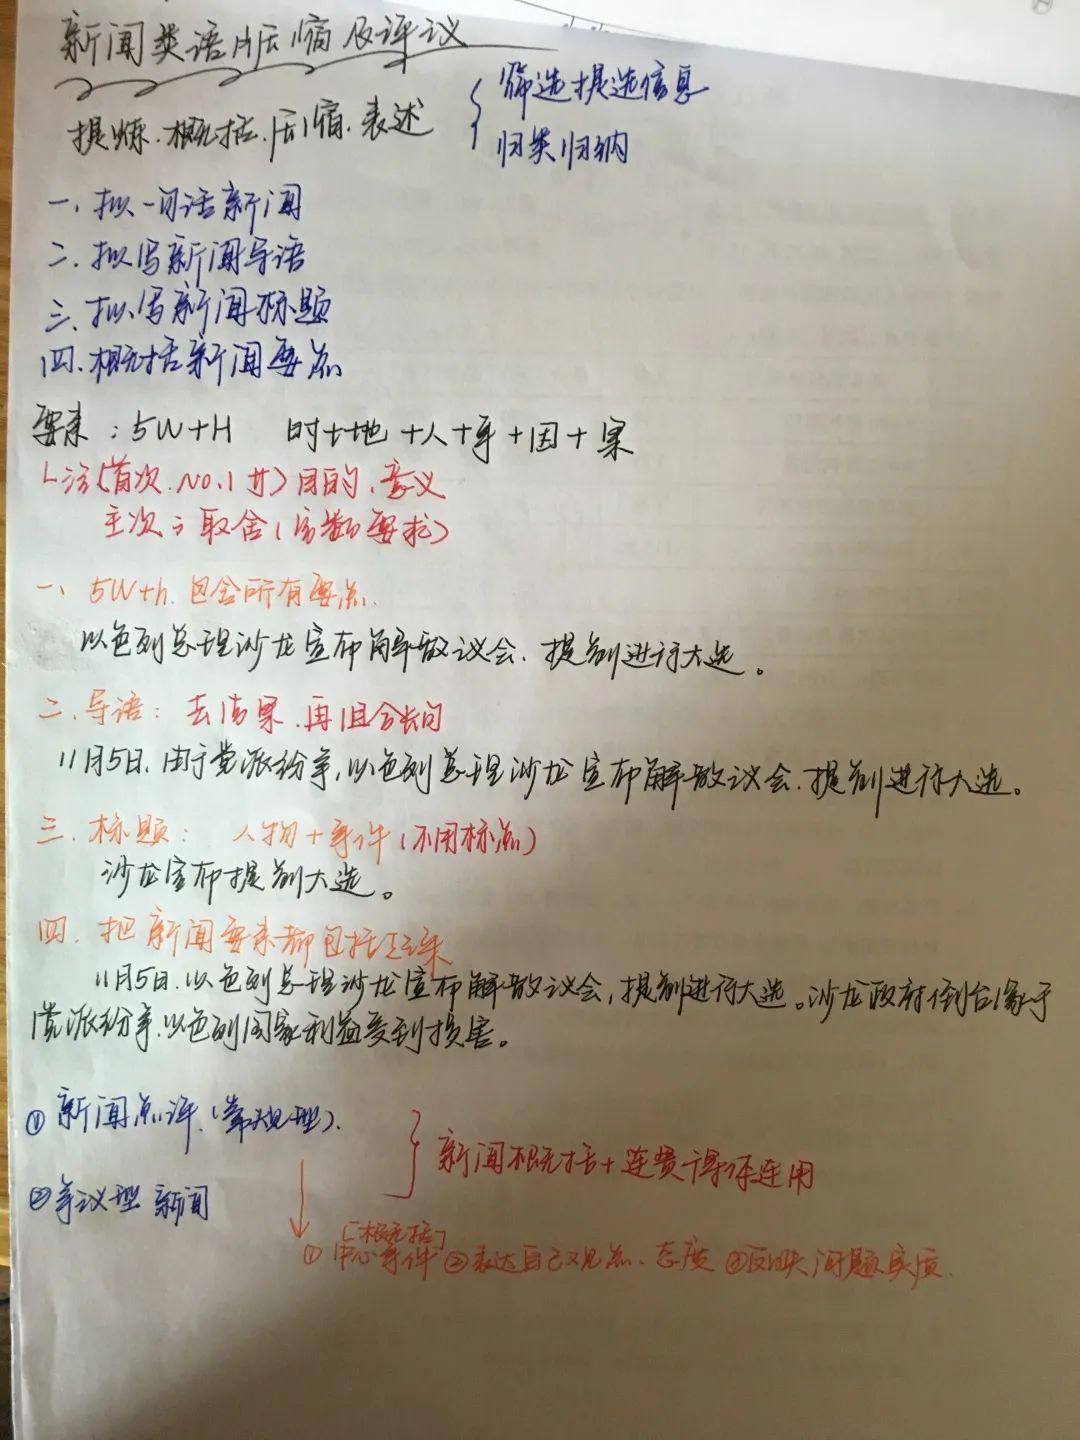 新闻类语片压缩及评议
提炼.概括.压缩.表述
筛选提选信息
归类归纳
一、拟一句话新闻
二、拟写新闻导语
三、拟写新闻标题
四、概括新闻要点
要素：5W+H 时+地+人+事+因+果
(首次.No.1 廿)目的、意义
主次→取舍(字数要求)
一、5W+h.包含所有要点.
以色列总理沙龙宣布解散议会、提前进行大选。
二、导语：去结果.再组合长句
11月5日、由于党派纷争，以色列总理沙龙宣布解散议会、提前进行大选。
三、标题： 人物+事件(不用标点)
沙龙宣布提前大选。
四、把新闻要素都包括起来
11月5日.以色列总理沙龙宣布解散议会，提前进行大选。沙龙政府倒台缘于
党派纷争.以色列国家利益受到损害。
①新闻点评.(常规型).
②争议型新闻
新闻概括+连贯得体运用
[概括]
①中心事件②表达自己观点、态度③反映问题实质.